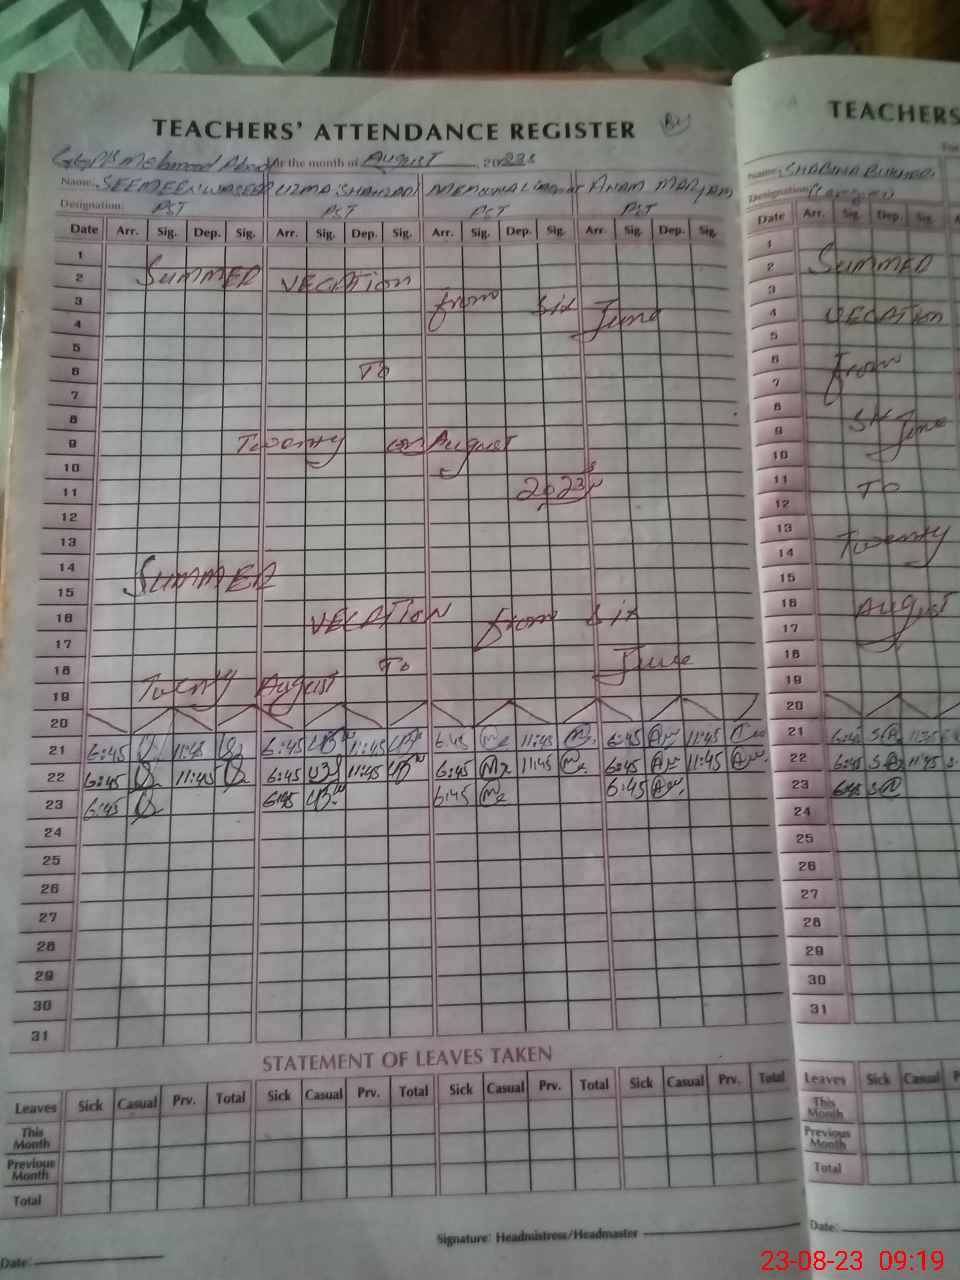 TEACHERS' ATTENDANCE REGISTER
For the month of August 2023
Name: SEEMEEN UZMA SHAHZADI ANAM MARYAM
Designation: PST PST PST PST
Date Arr. Sig. Dep. Sig. Arr. Sig. Dep. Sig. Arr. Sig. Dep. Sig. Arr. Sig. Dep. Sig.
1
2 SUMMER VECATION
3 from six June
4
5
6 To
7
8
9 Twenty on August
10
11 2023
12
13
14
15 SUMMER
16 VECATION from six
17
18 To June
19 Twenty August
20
21 6:45 11:45 6:45 11:45 6:45 11:45 6:45 11:45
22 6:45 11:45 6:45 11:45 6:45 11:45 6:45 11:45
23 6:45 6:45 6:45 6:45
24
25
26
27
28
29
30
31
STATEMENT OF LEAVES TAKEN
Leaves Sick Casual Prv. Total Sick Casual Prv. Total Sick Casual Prv. Total Sick Casual Prv. Total
This Month
Previous Month
Total
Signature: Headmistress/Headmaster
Date:
TEACHERS
Name: SHABINA BUKHARI
Designation
Date Arr. Sig. Dep. Sig.
1
2 SUMMER
3
4 VECATION
5
6 From
7
8
9 Six June
10
11 To
12
13
14 Twenty
15
16 August
17
18
19
20
21 6:45 11:45
22 6:45 11:45
23 6:45
24
25
26
27
28
29
30
31
Leaves Sick Casual
This Month
Previous Month
Total
Date:
23-08-23 09:19